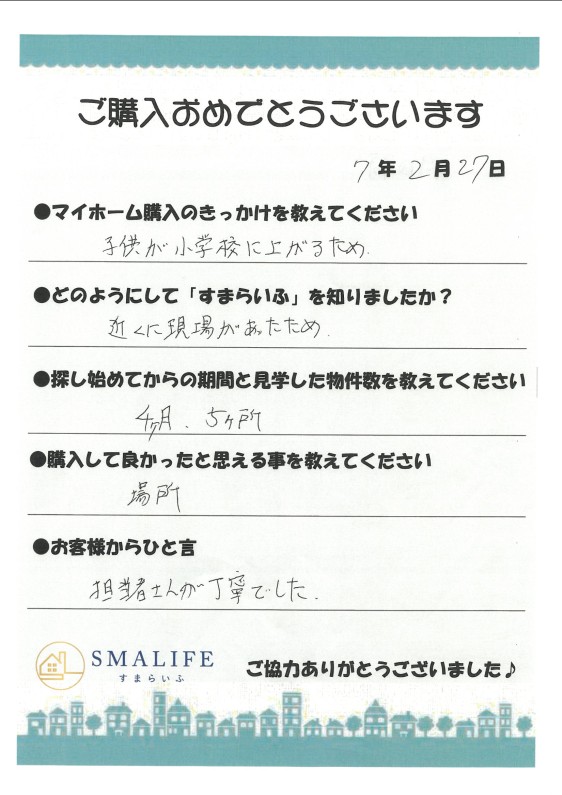 ご購入おめでとうございます
7年2月27日
●マイホーム購入のきっかけを教えてください
子供が小学校に上がるため.
●どのようにして「すまらいふ」を知りましたか？
近くに現場があったため.
●探し始めてからの期間と見学した物件数を教えてください
4ヶ月、5ヶ所
●購入して良かったと思える事を教えてください
場所
●お客様からひと言
担当者さんが丁寧でした.
SMALIFE
すまらいふ
ご協力ありがとうございました♪